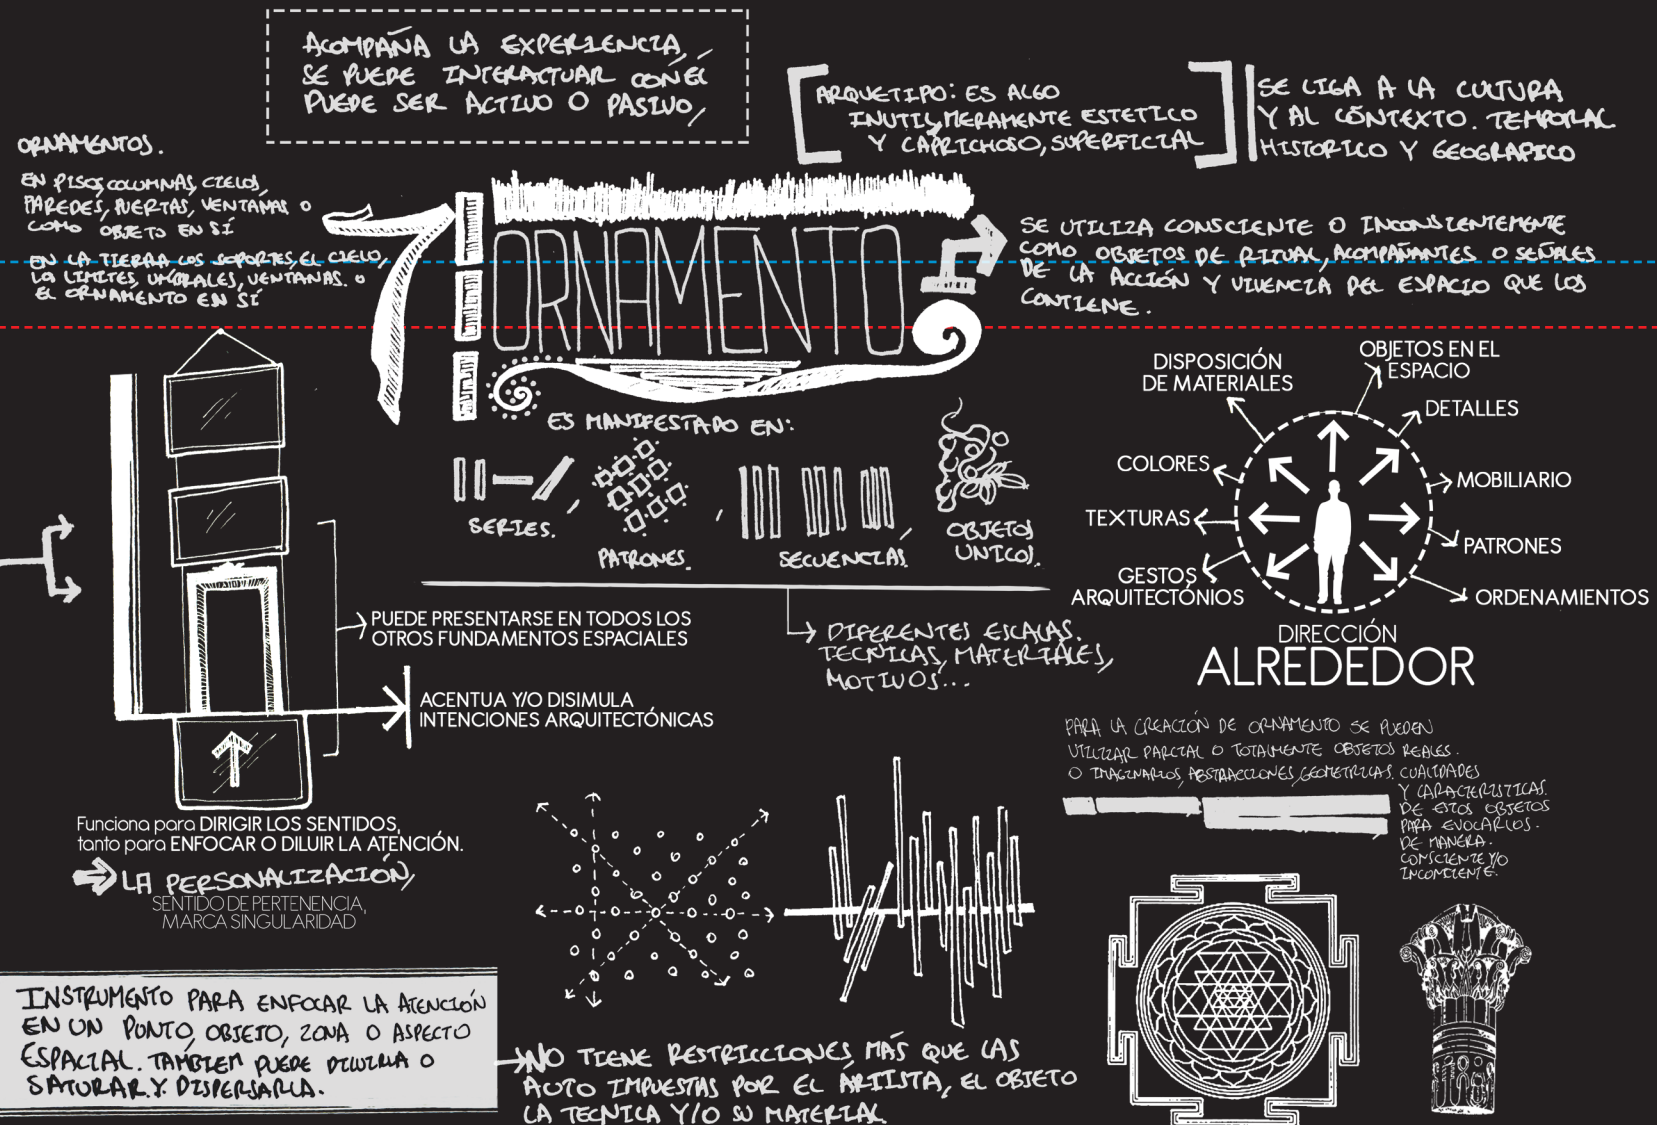 ACOMPAÑA LA EXPERIENCIA,
SE PUEDE INTERACTUAR CON ÉL
PUEDE SER ACTIVO O PASIVO,
ARQUETIPO: ES ALGO
INUTIL, MERAMENTE ESTETICO
Y CAPRICHOSO, SUPERFICIAL
SE LIGA A LA CULTURA
Y AL CONTEXTO. TEMPORAL
HISTORICO Y GEOGRAFICO
ORNAMENTOS.
EN PISOS, COLUMNAS, CIELOS,
PAREDES, PUERTAS, VENTANAS O
COMO OBJETO EN SÍ
EN LA TIERRA LOS SOPORTES, EL CIELO,
LO LIMITES, UMBRALES, VENTANAS. O
EL ORNAMENTO EN SÍ
7 ORNAMENTO
SE UTILIZA CONSCIENTE O INCONSIENTEMENTE
COMO OBJETOS DE RITUAL, ACOMPAÑANTES O SEÑALES
DE LA ACCIÓN Y VIVENCIA DEL ESPACIO QUE LOS
CONTIENE.
ES MANIFESTADO EN:
SERIES.
PATRONES.
SECUENCIAS.
OBJETOS
UNICOS.
DIFERENTES ESCALAS.
TECNICAS, MATERIALES,
MOTIVOS...
DISPOSICIÓN
DE MATERIALES
OBJETOS EN EL
ESPACIO
DETALLES
COLORES
MOBILIARIO
TEXTURAS
PATRONES
GESTOS
ARQUITECTÓNIOS
ORDENAMIENTOS
DIRECCIÓN
ALREDEDOR
PUEDE PRESENTARSE EN TODOS LOS
OTROS FUNDAMENTOS ESPACIALES
ACENTUA Y/O DISIMULA
INTENCIONES ARQUITECTÓNICAS
Funciona para DIRIGIR LOS SENTIDOS,
tanto para ENFOCAR O DILUIR LA ATENCIÓN.
LA PERSONALIZACIÓN,
SENTIDO DE PERTENENCIA,
MARCA SINGULARIDAD
PARA LA CREACIÓN DE ORNAMENTO SE PUEDEN
UTILIZAR PARCIAL O TOTALMENTE OBJETOS REALES.
O IMAGINARIOS, ABSTRACCIONES, GEOMETRICAS. CUALIDADES
Y CARACTERISTICAS.
DE ESTOS OBJETOS
PARA EVOCARLOS.
DE MANERA.
CONSCIENTE Y/O
INCONCIENTE.
INSTRUMENTO PARA ENFOCAR LA ATENCIÓN
EN UN PUNTO, OBJETO, ZONA O ASPECTO
ESPACIAL. TAMBIEN PUEDE DILUIRLA O
SATURAR Y DISPERSARLA.
NO TIENE RESTRICCIONES, MÁS QUE LAS
AUTO IMPUESTAS POR EL ARTISTA, EL OBJETO
LA TECNICA Y/O SU MATERIAL.